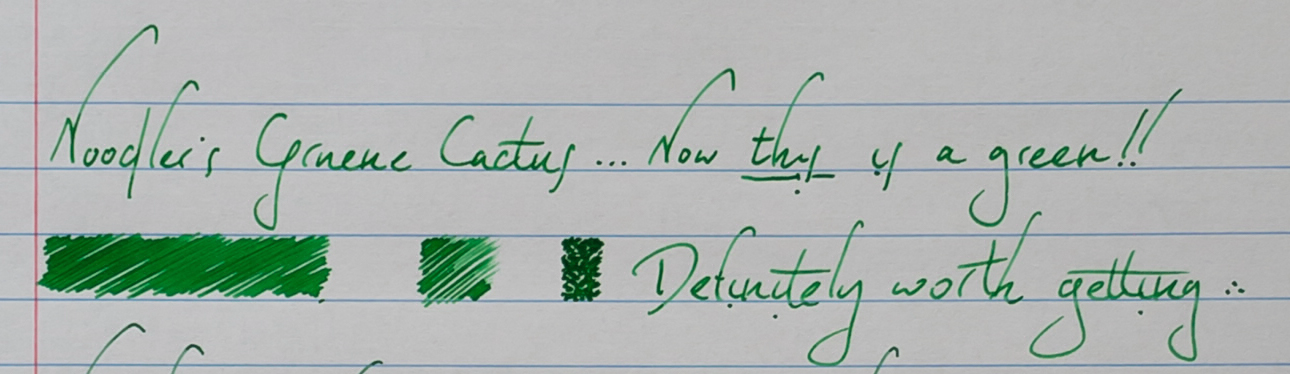 Noodler's Gruene Cactus... Now this is a green!!
Definitely worth getting...